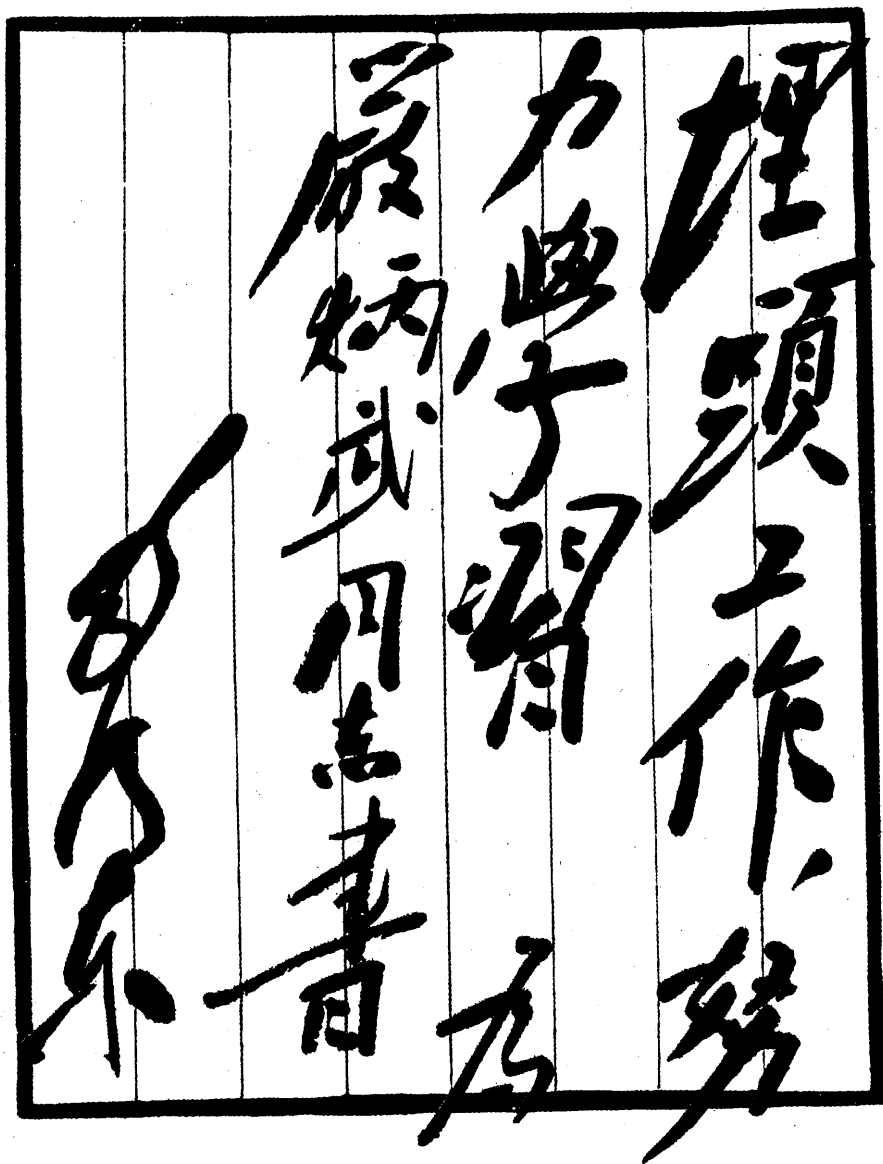 埋頭工作、努
力學習，為
嚴炳武同志書
毛澤東